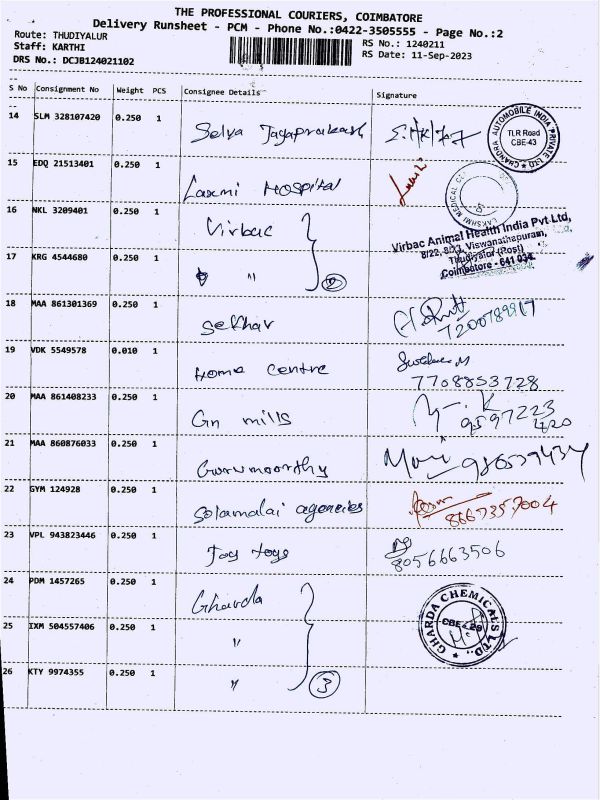 THE PROFESSIONAL COURIERS, COIMBATORE
Delivery Runsheet - PCM - Phone No.:0422-3505555 - Page No.:2
Route: THUDIYALUR
RS No.: 1240211
Staff: KARTHI
RS Date: 11-Sep-2023
DRS No.: DCJB124021102
S No Consignment No Weight PCS Consignee Details Signature
14 SLM 328107420 0.250 1 Selva Jayaprakash
CHANDRA AUTOMOBILE INDIA PRIVATE LTD
TLR Road
CBE-43
15 EDQ 21513401 0.250 1 Laxmi Hospital
LAKSHMI MEDICAL
16 NKL 3209401 0.250 1 Virbac
Virbac Animal Health India Pvt Ltd,
Viswanathapuram,
Thudiyalor (Post)
Coimbatore - 641 034.
17 KRG 4544680 0.250 1 " 2
18 MAA 861301369 0.250 1 Sekhar
7200789917
19 VDK 5549578 0.010 1 Home Centre
7708853728
20 MAA 861408233 0.250 1 Gn mills
9597223
420
21 MAA 860876033 0.250 1 Gurumoorthy
22 GYM 124928 0.250 1 Solamalai agencies
8667357004
23 VPL 943823446 0.250 1 Joy toys
8056663506
24 PDM 1457265 0.250 1 Gharda
GHARDA CHEMICALS LTD.,
CBE-29
25 IXM 504557406 0.250 1 "
26 KTY 9974355 0.250 1 " 3